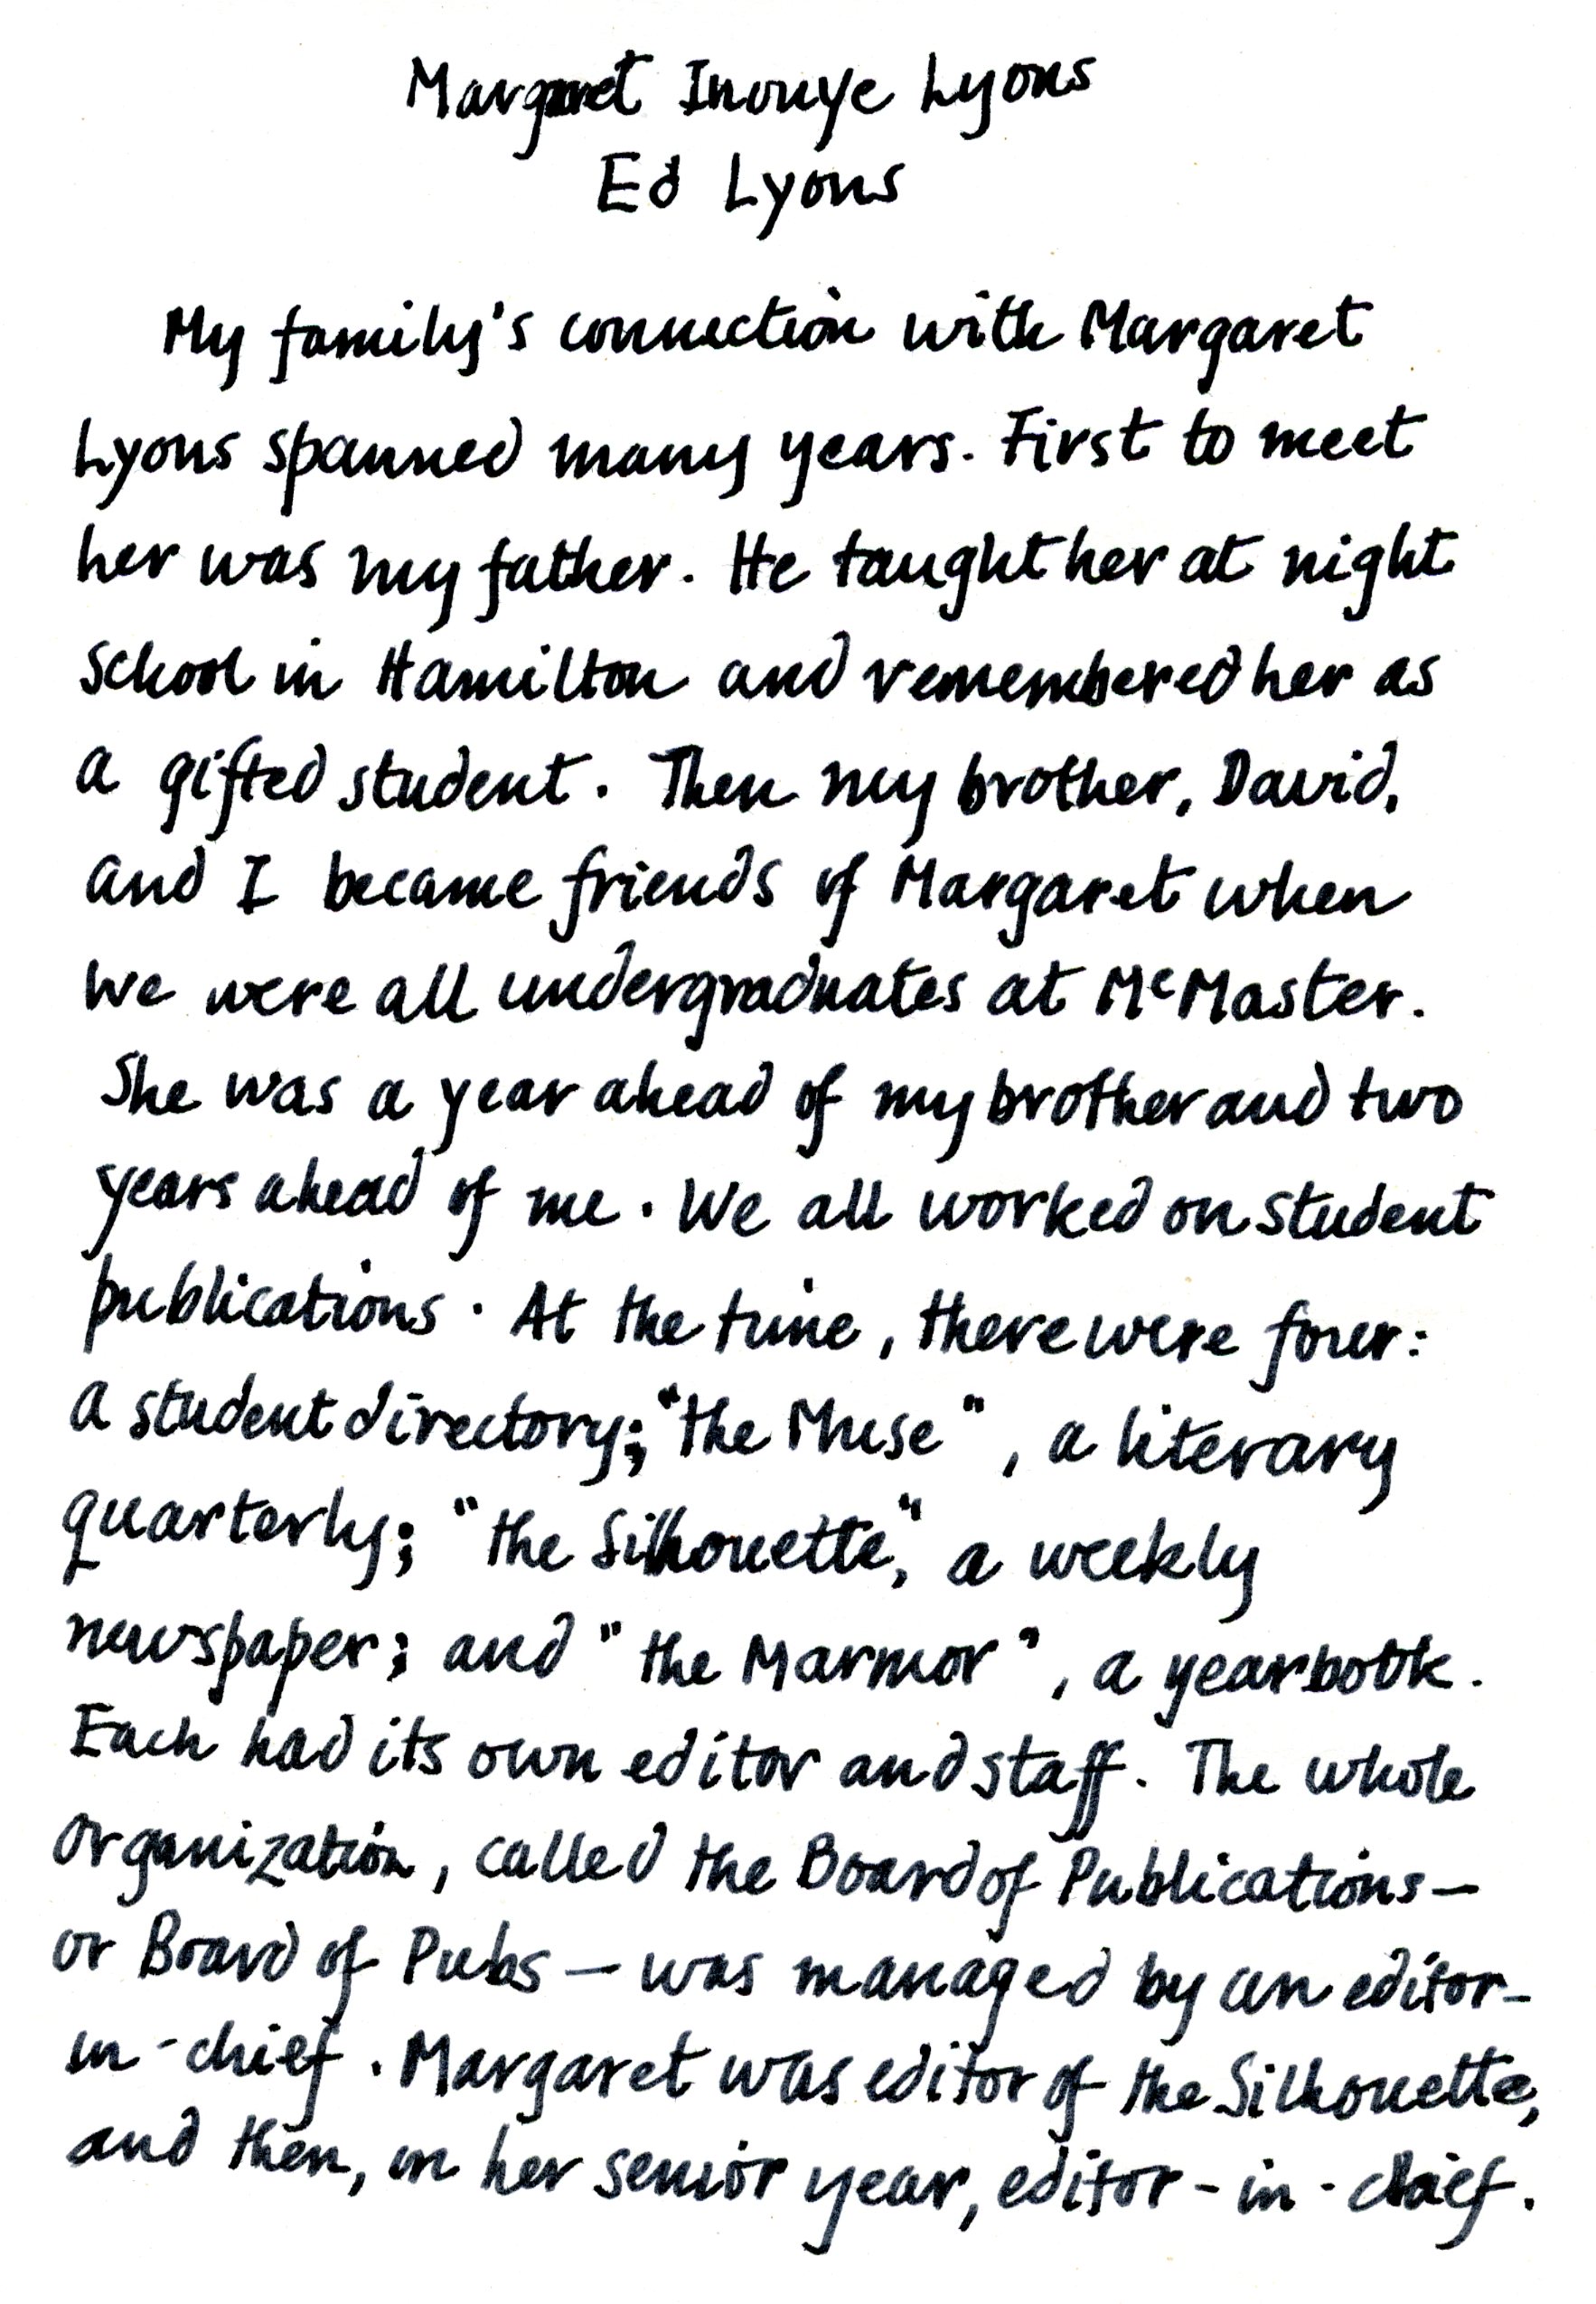 Margaret Inouye Lyons
Ed Lyons
My family's connection with Margaret
Lyons spanned many years. First to meet
her was my father. He taught her at night
school in Hamilton and remembered her as
a gifted student. Then my brother, David,
and I became friends of Margaret when
we were all undergraduates at McMaster.
She was a year ahead of my brother and two
years ahead of me. We all worked on student
publications. At the time, there were four:
a student directory; "the Muse", a literary
quarterly; "the Silhouette," a weekly
newspaper; and "the Marmor", a yearbook.
Each had its own editor and staff. The whole
organization, called the Board of Publications—
or Board of Pubs — was managed by an editor-
in-chief. Margaret was editor of the Silhouette,
and then, in her senior year, editor-in-chief.